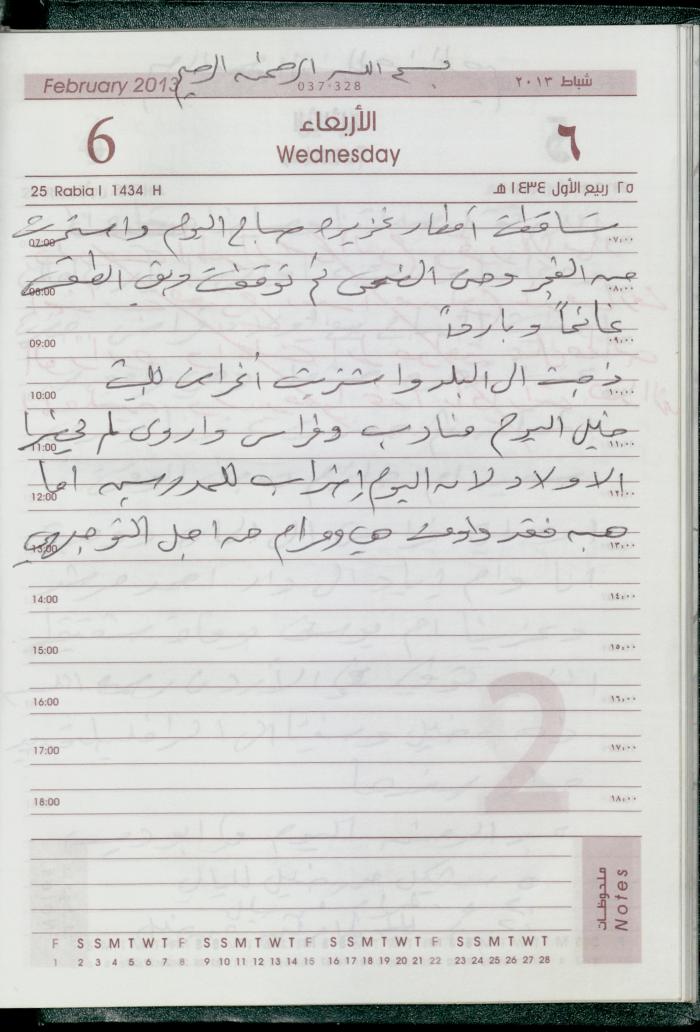 بسم الله الرحمن الرحيم
February 2013
037-328
شباط ٢٠١٣
6
الأربعاء
Wednesday
٦
25 Rabia I 1434 H
٢٥ ربيع الأول ١٤٣٤ هـ
تساقطت أمطار غزيره صباح اليوم واستمرت
07:00 ٠٧,٠٠
من الفجر وحتى الضحى ثم توقفت وبقى الطقس
08:00 ٠٨,٠٠
غائماً وبارداً
09:00 ٠٩,٠٠
ذهبت الى البلد واشتريت أغراض للبيت
10:00 ١٠,٠٠
اليوم وفراس واروى لم
11:00 ١١,٠٠
الاولاد لانه اليوم إضراب للمدرسين اما
12:00 ١٢,٠٠
هبه فقد هي ومرام من اجل التوجيهي
13:00 ١٣,٠٠
14:00 ١٤,٠٠
15:00 ١٥,٠٠
16:00 ١٦,٠٠
17:00 ١٧,٠٠
18:00 ١٨,٠٠
2
ملحوظات
Notes
F S S M T W T F S S M T W T F S S M T W T F S S M T W T
1 2 3 4 5 6 7 8 9 10 11 12 13 14 15 16 17 18 19 20 21 22 23 24 25 26 27 28